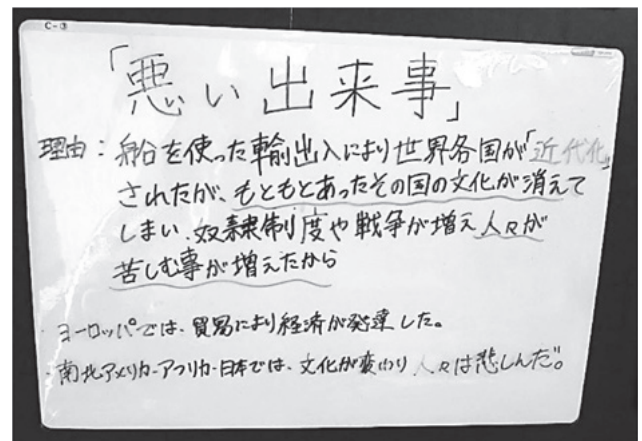 C-③
「悪い出来事」
理由：船を使った輸出入により世界各国が「近代化」
されたが、もともとあったその国の文化が消えて
しまい、奴隷制度や戦争が増え人々が
苦しむ事が増えたから
・ヨーロッパでは、貿易により経済が発達した。
・南北アメリカ・アフリカ・日本では、文化が変わり人々は悲しんだ。